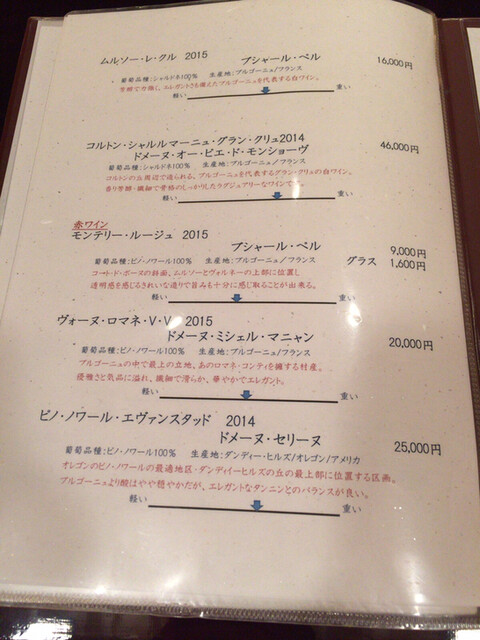 ムルソー・レ・クル 2015
ブシャール・ペル 16,000円
葡萄品種：シャルドネ100% 生産地：ブルゴーニュ/フランス
芳醇で力強し、エレガントさも備えたブルゴーニュを代表する白ワイン。
軽い 重い
コルトン・シャルルマーニュ・グラン・クリュ2014
ドメーヌ・オー・ピエ・ド・モンショーヴ 46,000円
葡萄品種：シャルドネ100% 生産地：ブルゴーニュ/フランス
コルトンの丘周辺で造られる、ブルゴーニュを代表するグラン・クリュの白ワイン。
香り芳醇・繊細で骨格のしっかりしたラグジュアリーなワインです。
軽い 重い
赤ワイン
モンテリー・ルージュ 2015
ブシャール・ペル 9,000円
葡萄品種：ピノ・ノワール100% 生産地：ブルゴーニュ/フランス グラス 1,600円
コート・ド・ボーヌの斜面、ムルソーとヴォルネーの上部に位置し
透明感を感じるきれいな造りで旨みも十分に感じ取ることが出来る。
軽い 重い
ヴォーヌ・ロマネ・V・V 2015
ドメーヌ・ミシェル・マニャン 20,000円
葡萄品種：ピノ・ノワール100% 生産地：ブルゴーニュ/フランス
ブルゴーニュの中で最上の立地、あのロマネ・コンティを擁する村産。
優雅さと気品に溢れ、繊細で滑らか、華やかでエレガント。
軽い 重い
ピノ・ノワール・エヴァンスタッド 2014
ドメーヌ・セリーヌ 25,000円
葡萄品種：ピノ・ノワール100% 生産地：ダンディー・ヒルズ/オレゴン/アメリカ
オレゴンのピノ・ノワールの最適地区・ダンディイーヒルズの丘の最上部に位置する区画。
ブルゴーニュより酸はやや穏やかだが、エレガントなタンニンとのバランスが良い。
軽い 重い